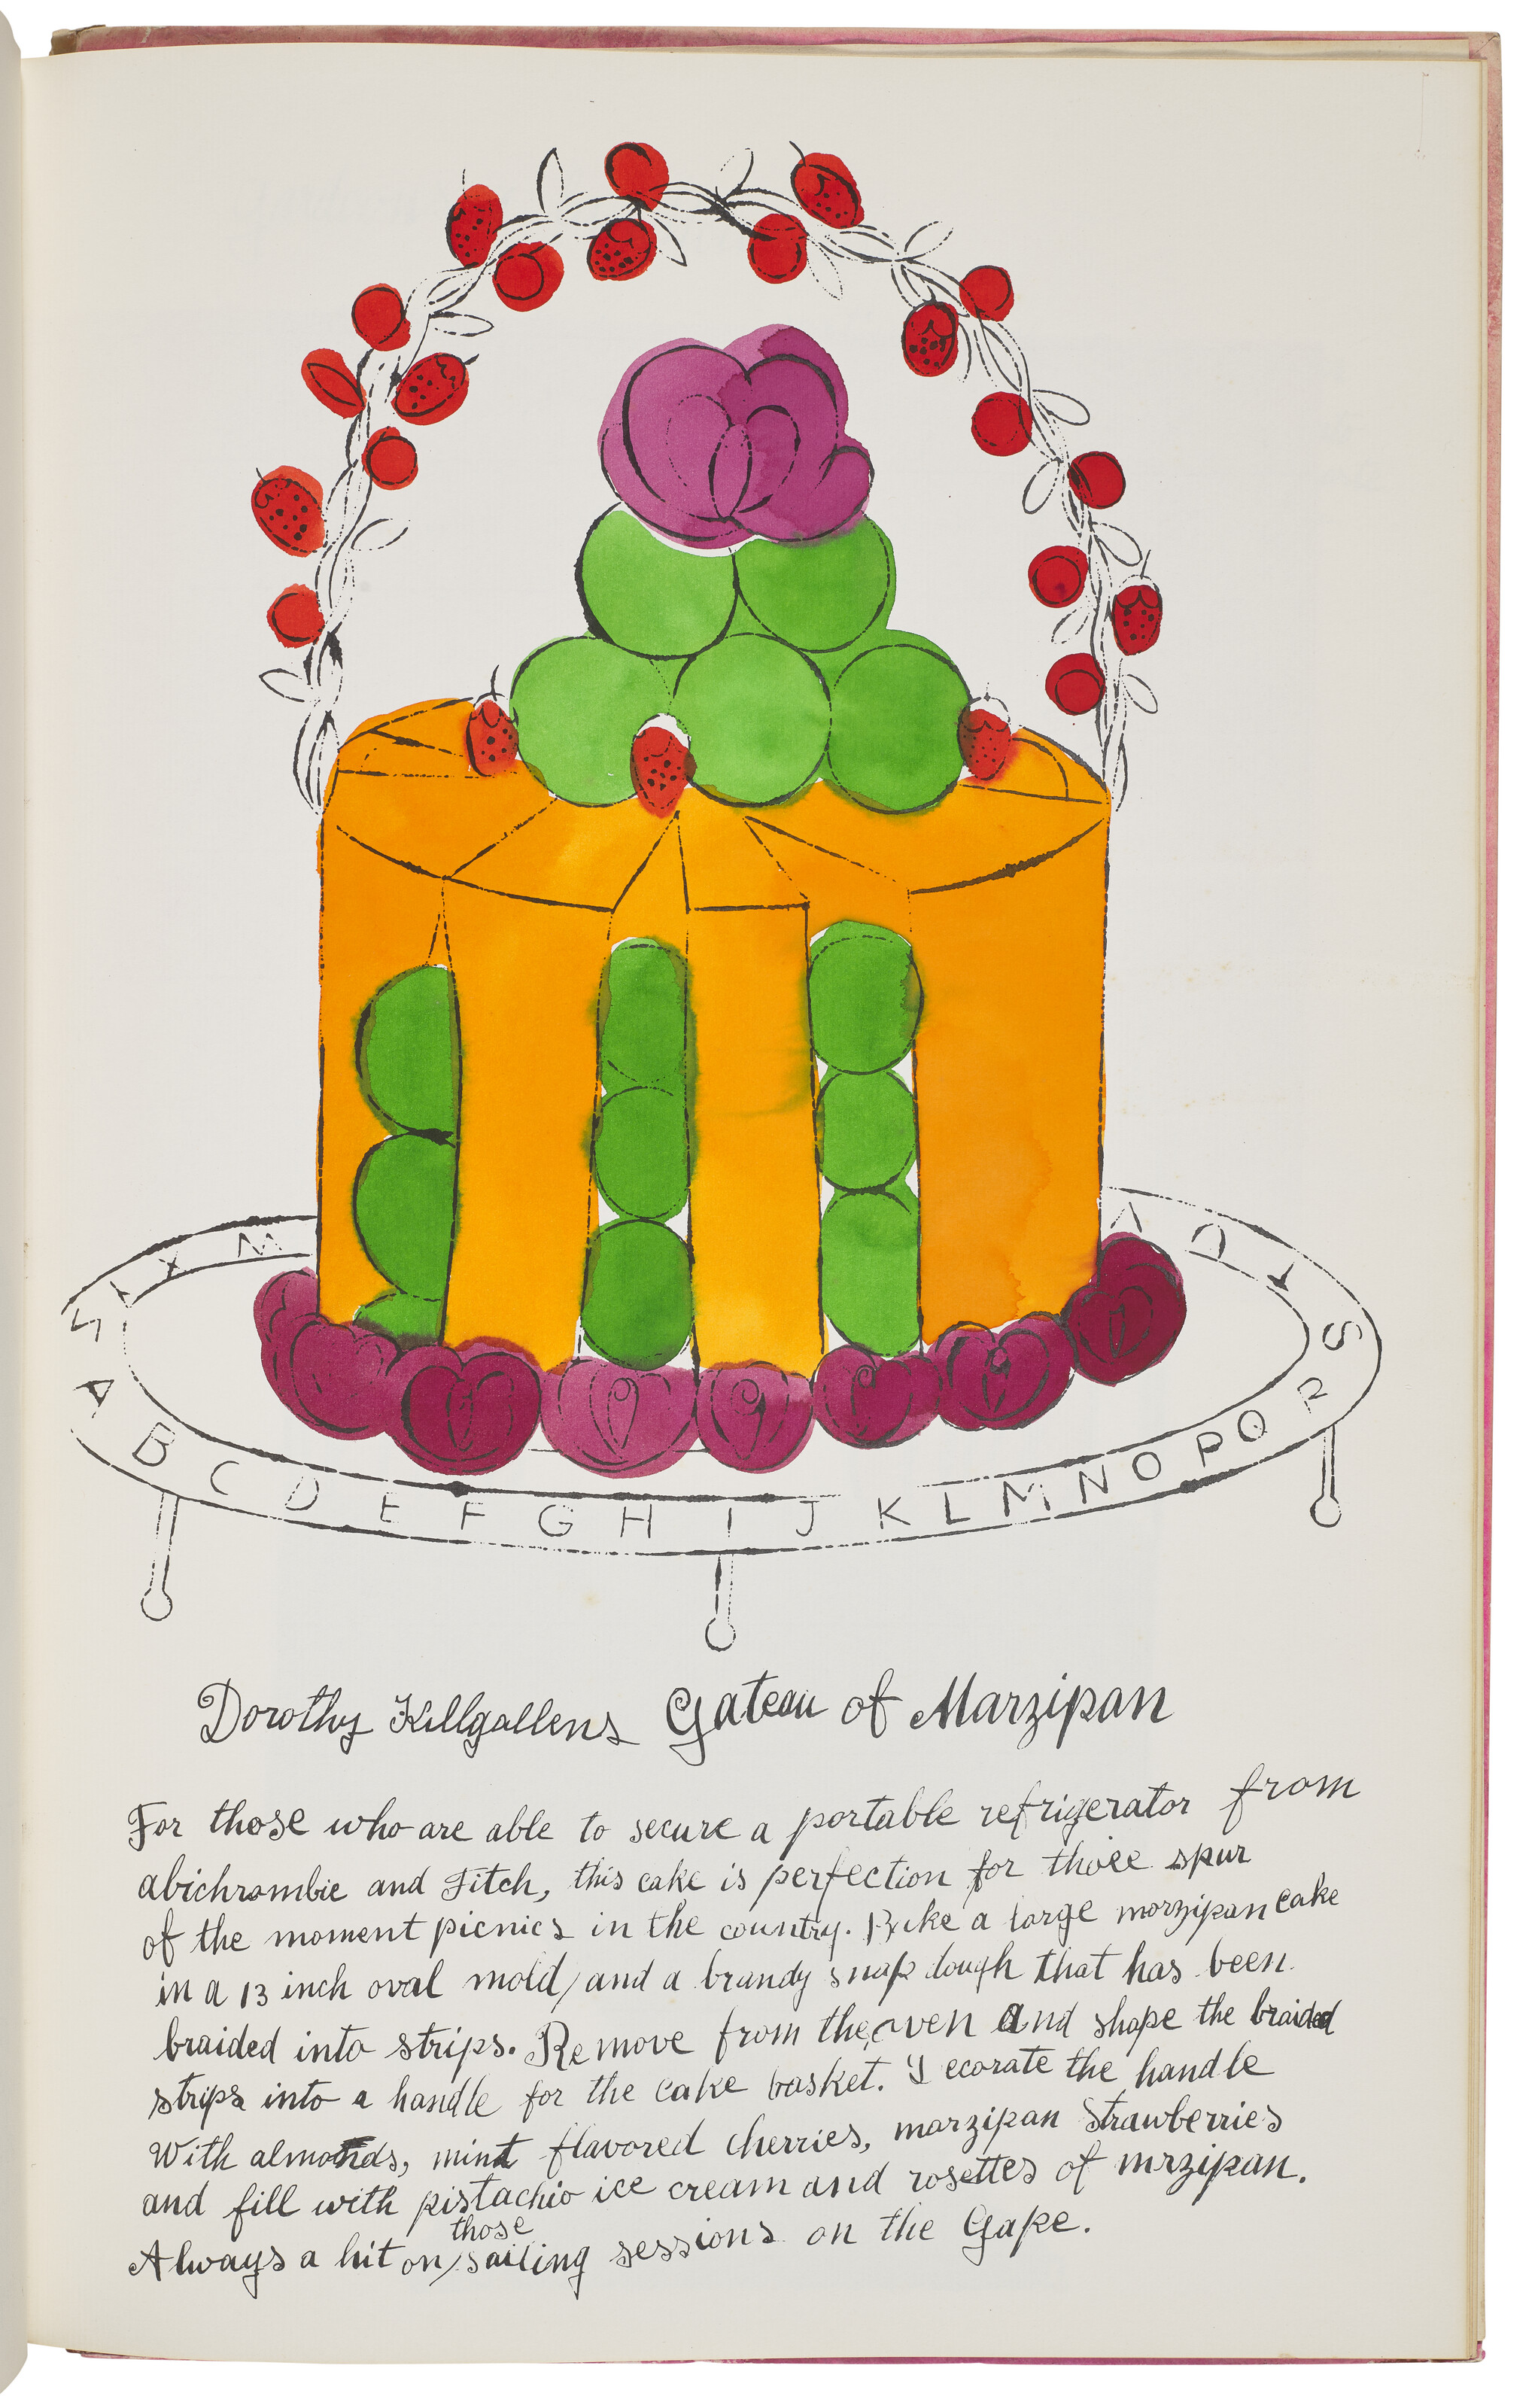 S T X M
V U T S
A B C D E F G H I J K L M N O P Q R S
Dorothy Killgallens Gateau of Marzipan
For those who are able to secure a portable refrigerator from
abichrombie and Fitch, this cake is perfection for those spur
of the moment picnics in the country. Bake a large marzipan cake
in a 13 inch oval mold, and a brandy snap dough that has been
braided into strips. Remove from the oven and shape the braided
strips into a handle for the cake basket. Decorate the handle
With almonds, mint flavored cherries, marzipan strawberries
and fill with pistachio ice cream and rosettes of mrzipan.
Always a hit on those sailing sessions on the Gape.